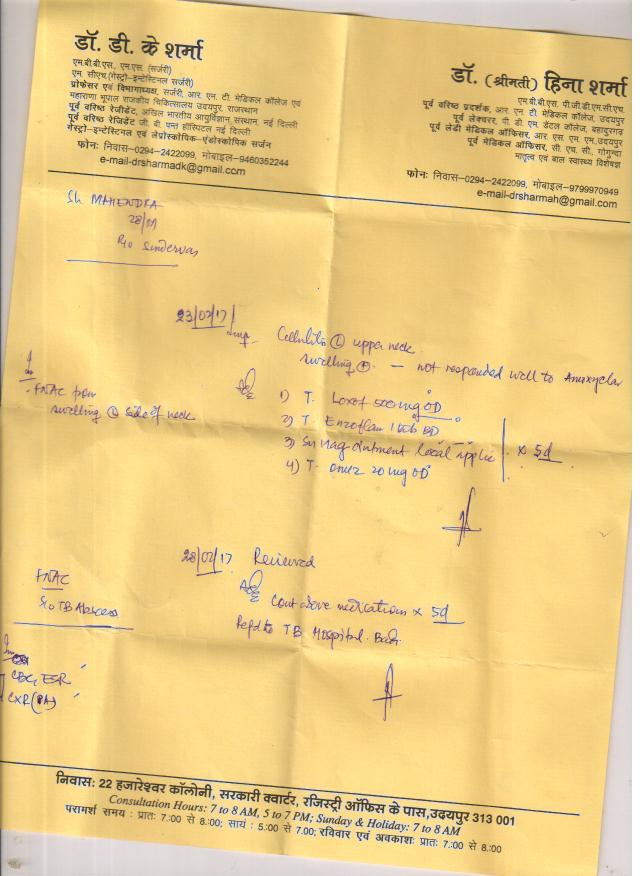 डॉ. डी. के शर्मा
एम.बी.बी.एस., एम.एस. (सर्जरी)
एम. सीएच.(गेस्ट्रो-इन्टेस्टिनल सर्जरी)
प्रोफेसर एवं विभागाध्यक्ष, सर्जरी, आर. एन. टी. मेडिकल कॉलेज एवं
महाराणा भूपाल राजकीय चिकित्सालय उदयपुर, राजस्थान
पूर्व वरिष्ठ रेजीडेंट, अखिल भारतीय आयुर्विज्ञान संस्थान, नई दिल्ली
पूर्व वरिष्ठ रेजिडेंट जी. बी. पन्त हॉस्पिटल नई दिल्ली
गेस्ट्रो-इन्टेस्टिनल एवं लेप्रोस्कोपिक-एंडोस्कोपिक सर्जन
फोन: निवास-0294-2422099, मोबाइल-9460352244
e-mail-drsharmadk@gmail.com
डॉ. (श्रीमती) हिना शर्मा
एम.बी.बी.एस. पी.जी.डी.एम.सी.एच.
पूर्व वरिष्ठ प्रदर्शक, आर. एन. टी. मेडिकल कॉलेज, उदयपुर
पूर्व लेक्चरर, पी. डी. एम. डेंटल कॉलेज, बहादुरगढ़
पूर्व लेडी मेडिकल ऑफिसर, आर. एस. एम. एम.,उदयपुर
पूर्व मेडिकल ऑफिसर, सी. एच. सी., गोगुन्दा
मातृत्व एवं बाल स्वास्थ्य विशेषज्ञ
फोन: निवास-0294-2422099, मोबाइल-9799970949
e-mail-drsharmah@gmail.com
Sh MAHENDRA
28/M
R/o Sindervas
23/02/17
Imp- Cellulitis (L) upper neck
swelling (+) - not responded well to Amoxyclav
FNAC from
swelling (L) side of neck
Adv
1) T. Loxof 500mg OD
2) T. Enzoflam 1 tab BD
3) Su Mag ointment local applic
4) T. Omez 20 mg OD
x 5d
28/02/17 Reviewed
FNAC
S/o TB Abscess
Adv
Cont above medications x 5d
Refd to TB Hospital Badi
CBC, ESR
CXR (PA)
निवास: 22 हजारेश्वर कॉलोनी, सरकारी क्वार्टर, रजिस्ट्री ऑफिस के पास,उदयपुर 313 001
Consultation Hours: 7 to 8 AM, 5 to 7 PM; Sunday & Holiday: 7 to 8 AM
परामर्श समय : प्रातः 7:00 से 8:00; सायं : 5:00 से 7.00; रविवार एवं अवकाशः प्रातः 7:00 से 8:00